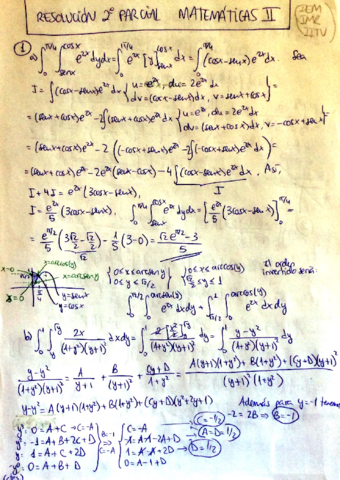 RESOLUCIÓN 2º PARCIAL MATEMÁTICAS II
IEM
IMR
IITV
① a) ∫₀^{π/4} ∫_{senx}^{cosx} e^{2x} dydx = ∫₀^{π/4} e^{2x} [y]_{senx}^{cosx} dx = ∫₀^{π/4} (cosx-senx)e^{2x} dx. Sea
I = ∫(cosx-senx)e^{2x} dx { u=e^{2x}, du=2e^{2x}dx
dv=(cosx-senx)dx, v=senx+cosx } =
= (senx+cosx)e^{2x} - 2∫(senx+cosx)e^{2x} dx { u=e^{2x}, du=2e^{2x}dx
dv=(senx+cosx)dx, v=-cosx+senx } =
= (senx+cosx)e^{2x} - 2 ((-cosx+senx)e^{2x} - 2∫(-cosx+senx)e^{2x} dx) =
= (senx+cosx)e^{2x} - 2e^{2x}(senx-cosx) - 4∫(cosx-senx)e^{2x} dx, Así,
I
I+4I = e^{2x}(3cosx-senx),
I = e^{2x}/5 (3cosx-senx), ∫₀^{π/4} ∫_{senx}^{cosx} e^{2x} dydx = [e^{2x}/5 (3cosx-senx)]₀^{π/4} =
= e^{π/2}/5 (3√2/2 - √2/2) - 1/5 (3-0) = (√2 e^{π/2} - 3)/5
√2
x=arccos(y)
x=0
x=arcsen(y)
x=0
y=senx
y=cosx
{ 0≤x≤arcsen y
0≤y≤√2/2
{ 0≤x≤arccos(y)
√2/2≤y≤1
El orden
invertido será:
∫₀^{√2/2} ∫₀^{arcsen(y)} e^{2x} dxdy + ∫_{√2/2}^{1} ∫₀^{arccos(y)} e^{2x} dxdy
b) ∫₀¹ ∫_y^{√y} 2x/((1+y²)(y+1)²) dxdy = ∫₀¹ [x²]_y^{√y}/((1+y²)(y+1)²) dy = ∫₀¹ (y-y²)/((1+y²)(y+1)²) dy
(y-y²)/((1+y²)(y+1)²) = A/(y+1) + B/(y+1)² + (Cy+D)/(1+y²) = (A(y+1)(1+y²)+B(1+y²)+(Cy+D)(y+1)²)/((y+1)²(1+y²))
y-y² = A(y+1)(1+y²)+B(1+y²)+(Cy+D)(y²+2y+1)
Además para y=-1 tenemos
-2=2B ⇒ B=-1
0=A+C → C=-A
-1=A+B+2C+D
1=A+C+2D
0=A+B+D
B=-1
⇒
C=-A
C=-A
-1=A-1-2A+D
1=A-A+2D
0=A-1+D
C=-1/2
A=D=1/2
D=1/2